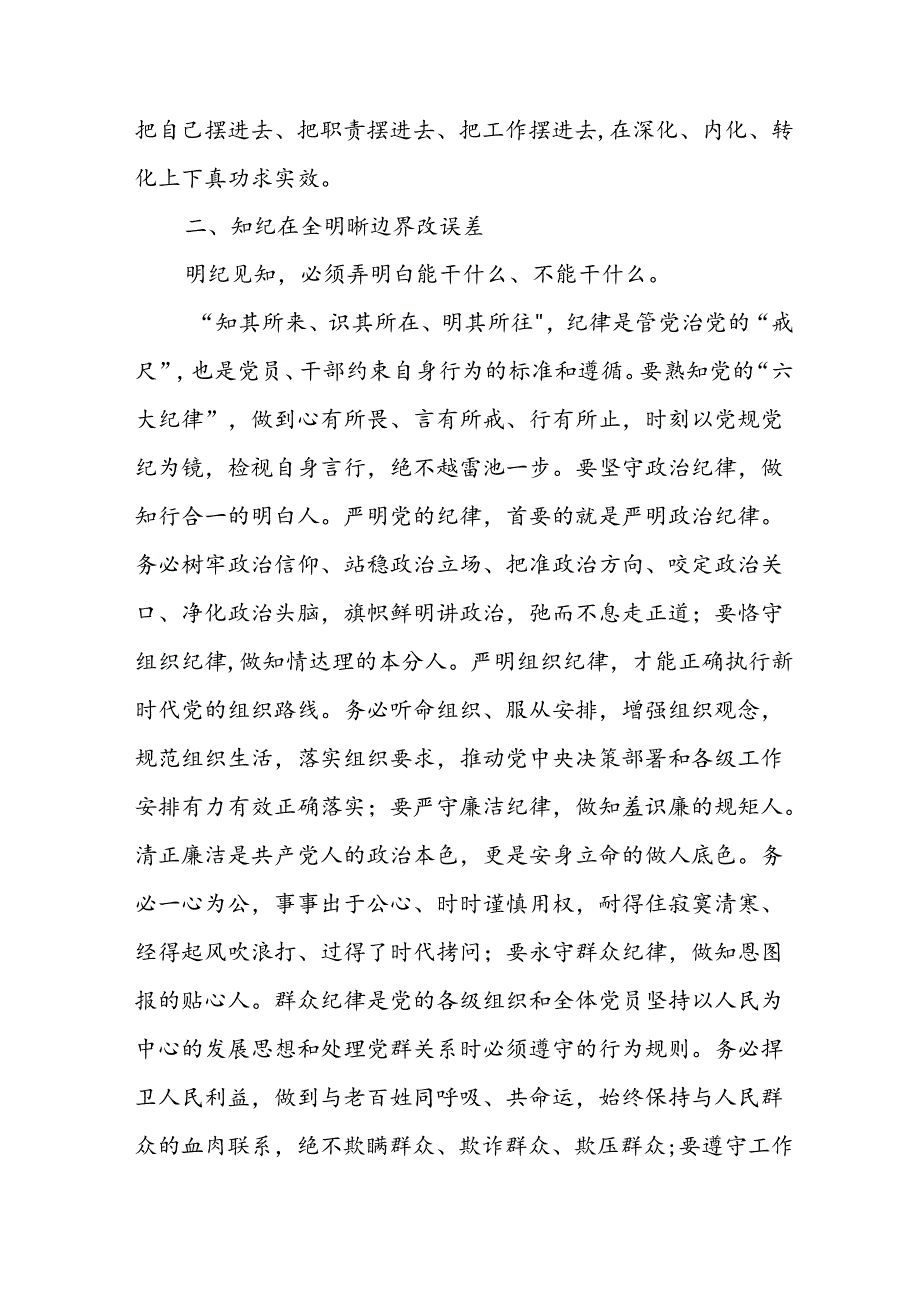 把自己摆进去、把职责摆进去、把工作摆进去,在深化、内化、转
化上下真功求实效。
二、知纪在全明晰边界改误差
明纪见知，必须弄明白能干什么、不能干什么。
“知其所来、识其所在、明其所往"，纪律是管党治党的“戒
尺”,也是党员、干部约束自身行为的标准和遵循。要熟知党的“六
大纪律”，做到心有所畏、言有所戒、行有所止，时刻以党规党
纪为镜，检视自身言行，绝不越雷池一步。要坚守政治纪律，做
知行合一的明白人。严明党的纪律，首要的就是严明政治纪律。
务必树牢政治信仰、站稳政治立场、把准政治方向、咬定政治关
口、净化政治头脑，旗帜鲜明讲政治，弛而不息走正道；要恪守
组织纪律,做知情达理的本分人。严明组织纪律，才能正确执行新
时代党的组织路线。务必听命组织、服从安排，增强组织观念，
规范组织生活，落实组织要求，推动党中央决策部署和各级工作
安排有力有效正确落实；要严守廉洁纪律，做知羞识廉的规矩人。
清正廉洁是共产党人的政治本色，更是安身立命的做人底色。务
必一心为公，事事出于公心、时时谨慎用权，耐得住寂寞清寒、
经得起风吹浪打、过得了时代拷问；要永守群众纪律，做知恩图
报的贴心人。群众纪律是党的各级组织和全体党员坚持以人民为
中心的发展思想和处理党群关系时必须遵守的行为规则。务必捍
卫人民利益，做到与老百姓同呼吸、共命运，始终保持与人民群
众的血肉联系，绝不欺瞒群众、欺诈群众、欺压群众;要遵守工作